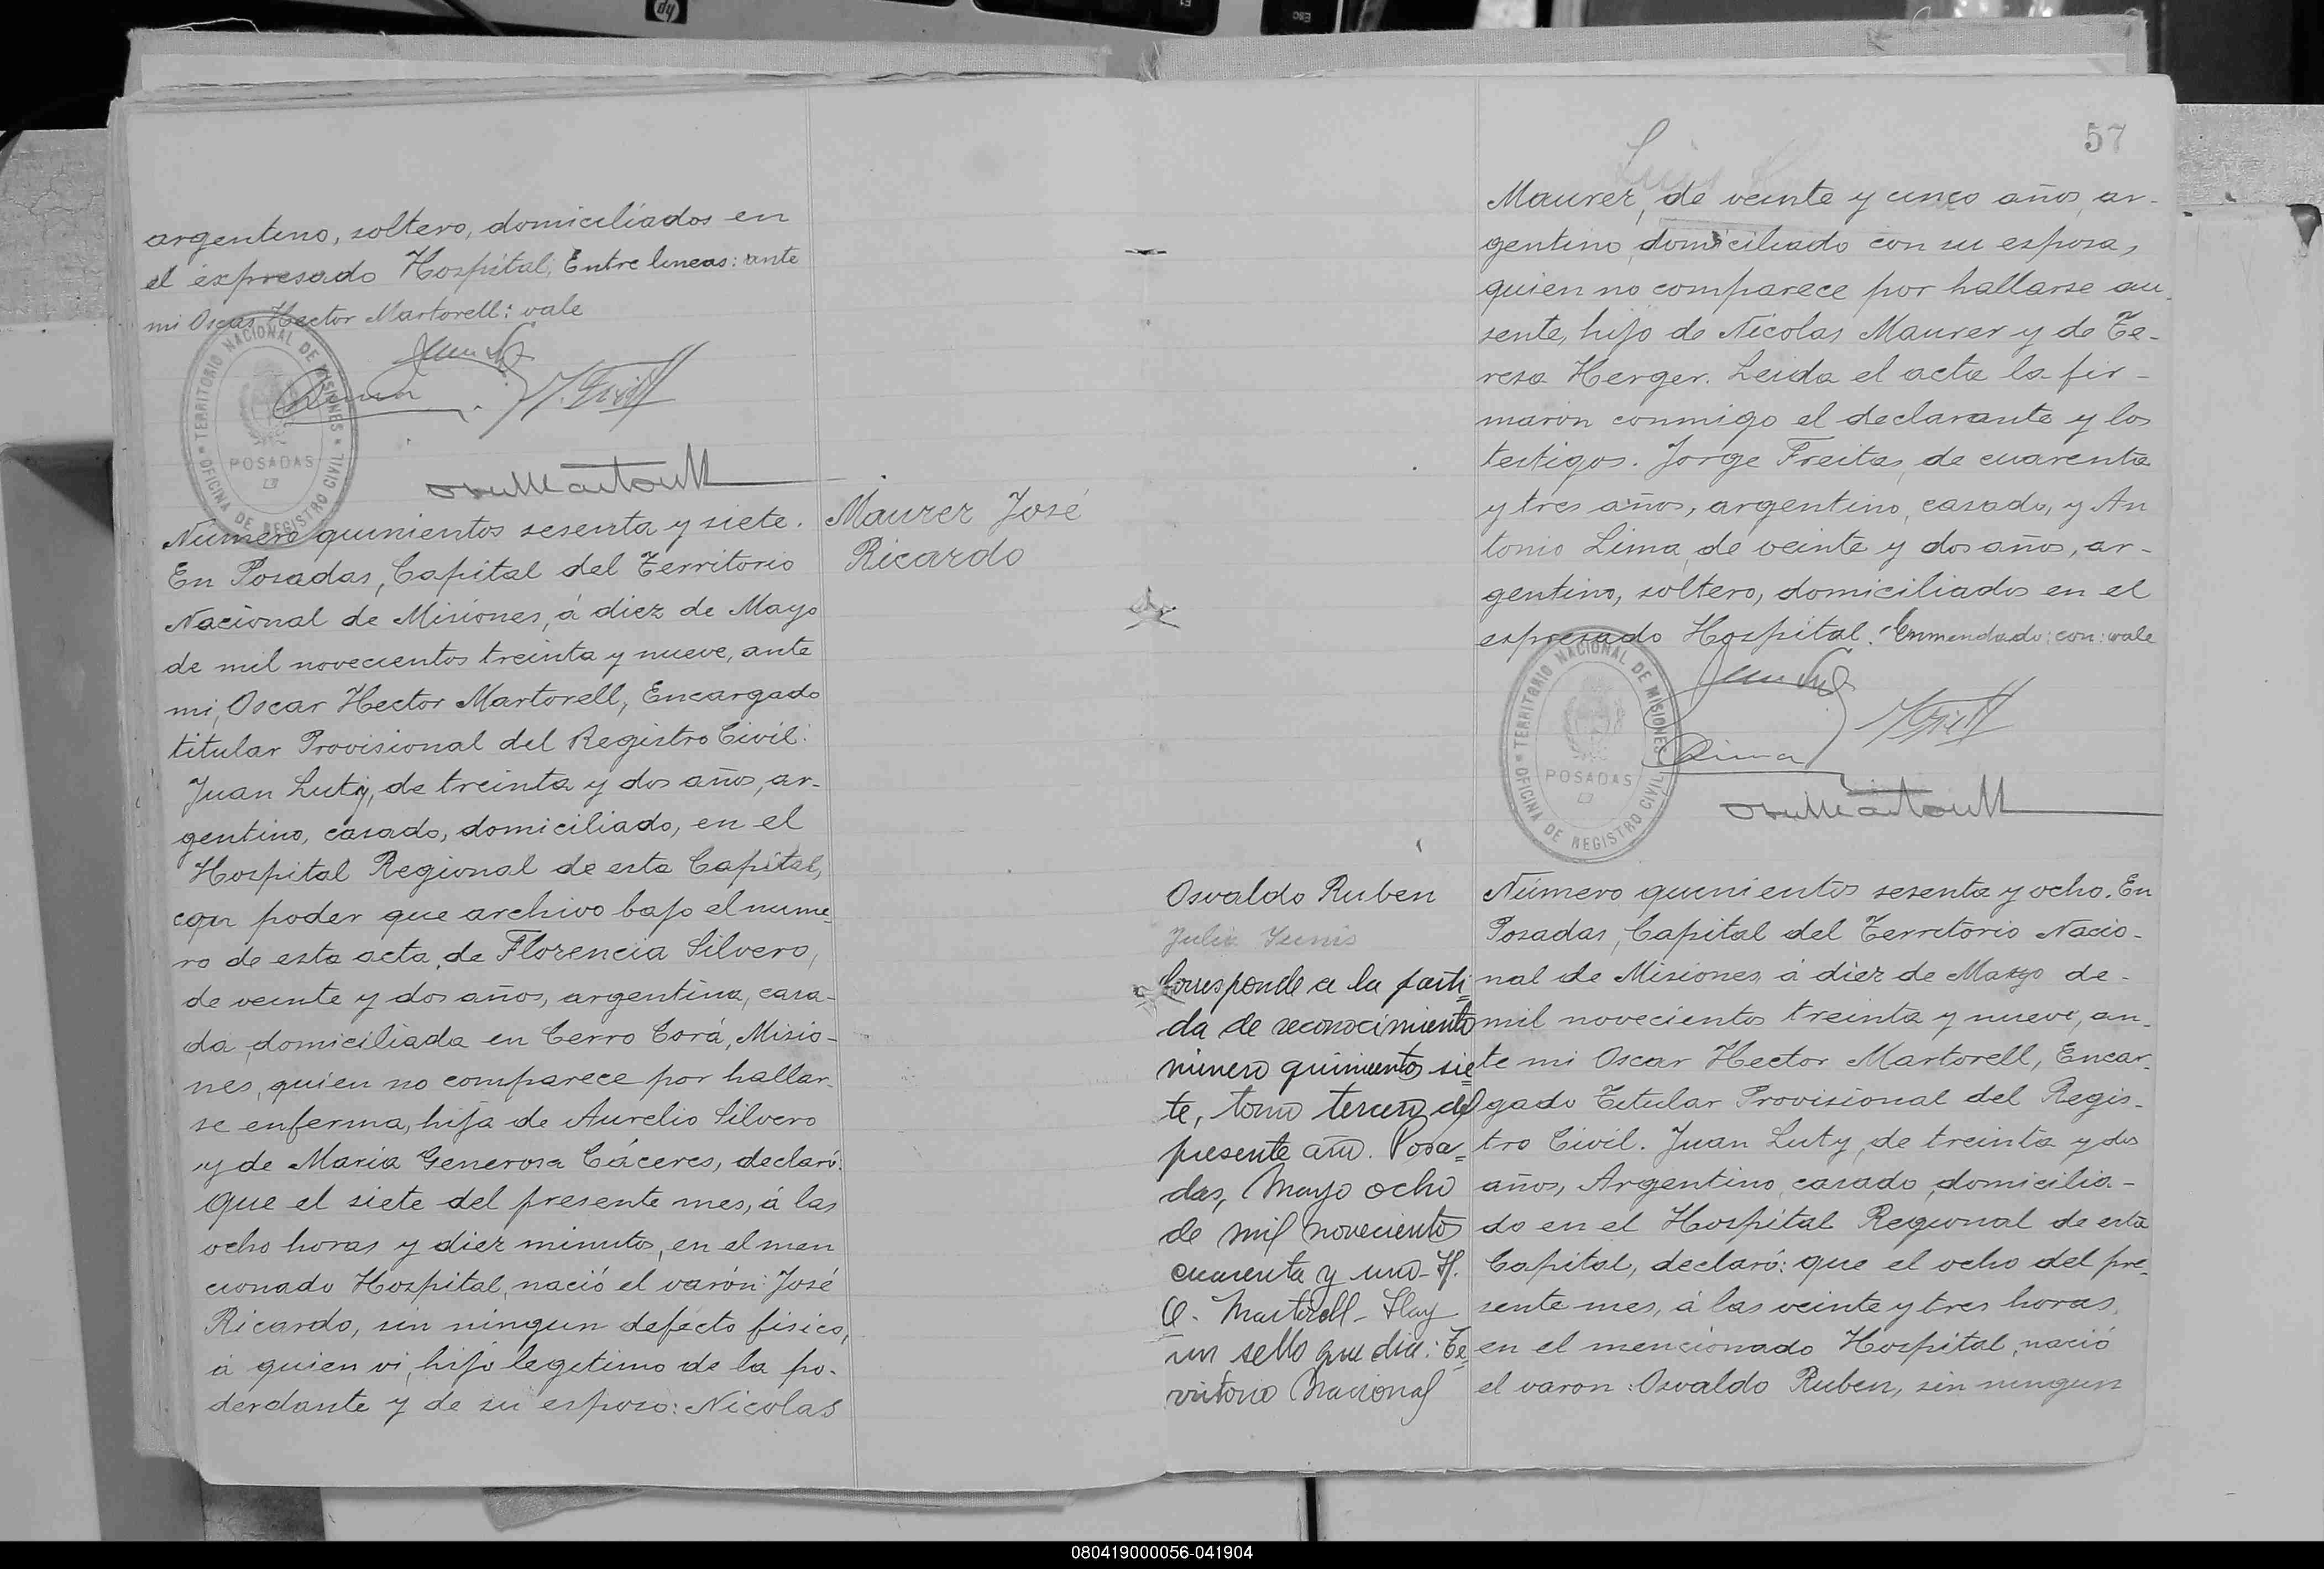 argentino, soltero, domiciliados en
el expresado Hospital, Entre lineas: ante
mi Oscar Hector Martorell: vale
TERRITORIO NACIONAL DE MISIONES
POSADAS
OFICINA DE REGISTRO CIVIL
Maurer José
Ricardo
Número quinientos sesenta y siete.
En Posadas, Capital del Territorio
Nacional de Misiones, á diez de Mayo
de mil novecientos treinta y nueve, ante
mi, Oscar Hector Martorell, Encargado
titular Provisional del Registro Civil:
Juan Luty, de treinta y dos años, ar-
gentino, casado, domiciliado, en el
Hospital Regional de esta Capital,
con poder que archivo bajo el nume-
ro de esta acta, de Florencia Silvero,
de veinte y dos años, argentina, casa-
da, domiciliada en Cerro Corá, Misio-
nes, quien no comparece por hallar-
se enferma, hija de Aurelio Silvero
y de Maria Generosa Cáceres, declaró:
Que el siete del presente mes, á las
ocho horas y diez minutos, en el men
cionado Hospital, nació el varón: José
Ricardo, sin ningun defecto fisico,
á quien vi, hijo legitimo de la po-
derdante y de su esposo: Nicolas
57
Maurer, de veinte y cinco años, ar-
gentino, domiciliado con su esposa,
quien no comparece por hallarse au-
sente, hijo de Nicolas Maurer y de Te-
resa Herger. Leida el acta la fir-
maron conmigo el declarante y los
testigos. Jorge Freitas, de cuarenta
y tres años, argentino, casado, y An
tonio Lima, de veinte y dos años, ar-
gentino, soltero, domiciliados en el
expresado Hospital. Enmendado: con: vale
TERRITORIO NACIONAL DE MISIONES
POSADAS
OFICINA DE REGISTRO CIVIL
Osvaldo Ruben
Corresponde a la parti-
da de reconocimiento
número quinientos sie-
te, tomo tercero del
presente año. Posa-
das, Mayo ocho
de mil novecientos
cuarenta y uno- H.
O. Martorell- Hay
un sello que dice: Te-
rritorio Nacional
Número quinientos sesenta y ocho. En
Posadas, Capital del Territorio Nacio-
nal de Misiones, á diez de Mayo de-
mil novecientos treinta y nueve, an-
te mi Oscar Hector Martorell, Encar-
gado Titular Provisional del Regis-
tro Civil. Juan Luty, de treinta y dos
años, Argentino, casado, domicilia-
do en el Hospital Regional de esta
Capital, declaró: que el ocho del pre-
sente mes, á las veinte y tres horas,
en el mencionado Hospital, nació
el varon: Osvaldo Ruben, sin ningun
080419000056-041904